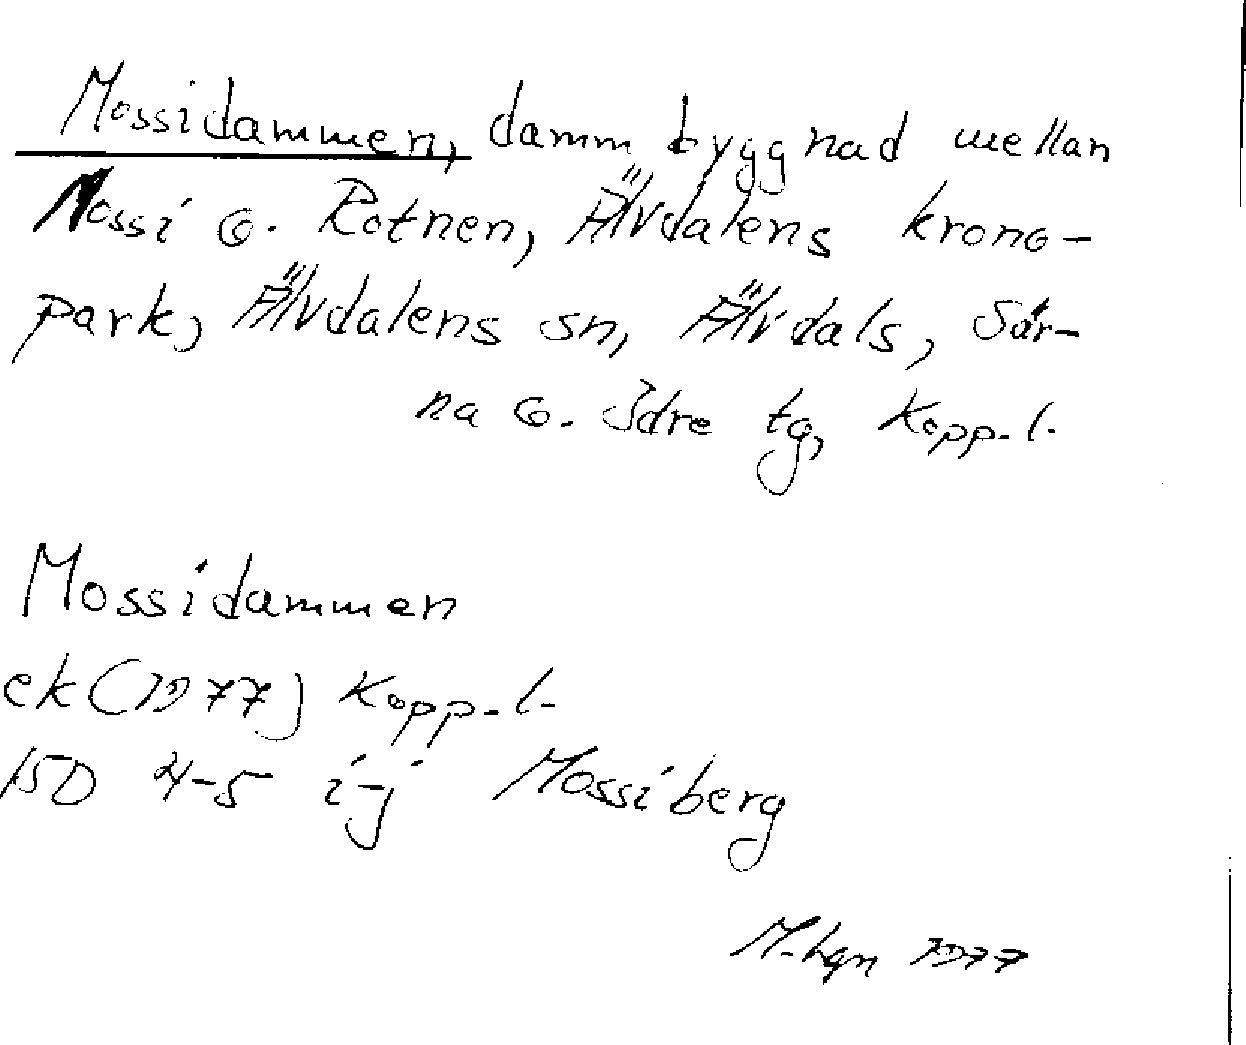 Mossidammen, dammbyggnad mellan
Mossi o. Rotnen, Älvdalens krono-
park, Älvdalens sn, Älvdals, Sär-
na o. Idre tg, Kopp. l.
Mossidammen
ek (1977) Kopp. l.
15D 4-5 i-j Mossiberg
M. hgn 1977